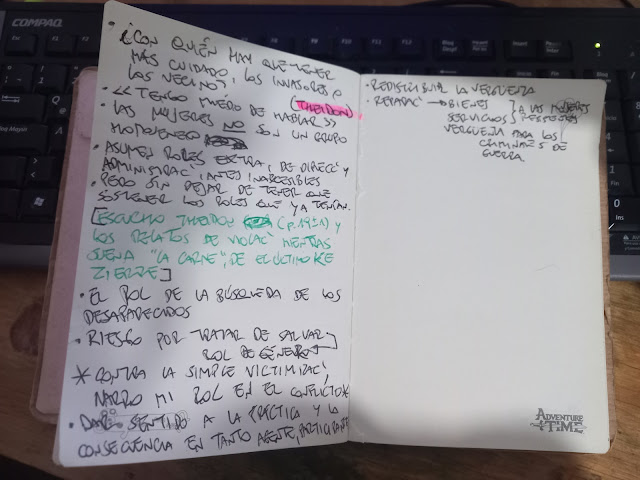 COMPAQ
• ¿CON QUIÉN HAY QUE TENER
MÁS CUIDADO, LOS INVASORES O
LOS VECINOS?
• << TENGO MIEDO DE HABLAR >> (THEIDON)
• LAS MUJERES NO SON UN GRUPO
HOMOGÉNEO
• ASUMEN ROLES EXTRA, DE DIRECC' Y
ADMINISTRAC' ANTES INACCESIBLES
• PERO SIN DEJAR DE TENER QUE
SOSTENER LOS ROLES QUE YA TENÍAN.
[ESCUCHO THEIDON (p. ) Y
LOS RELATOS DE VIOLAC' MIENTRAS
SUENA "LA CARNE", DE EL ÚLTIMO KE
ZIERRE]
• EL ROL DE LA BÚSQUEDA DE LOS
DESAPARECIDOS
• RIESGO POR TRATAR DE SALVAR
ROL DE GÉNERO
* CONTRA LA SIMPLE VICTIMIZAC',
NARRO MI ROL EN EL CONFLICTO*
• DAR SENTIDO A LA PRÁCTICA Y LA
CONSECUENCIA EN TANTO AGENTE, PARTICIPANTE
• REDISTRIBUIR LA VERGÜENZA
• REPARAC' → BIENES } A LAS MUJERES
SERVICIOS
VERGÜENZA PARA LOS
CRIMINALES DE
GUERRA.
ADVENTURE
TIME